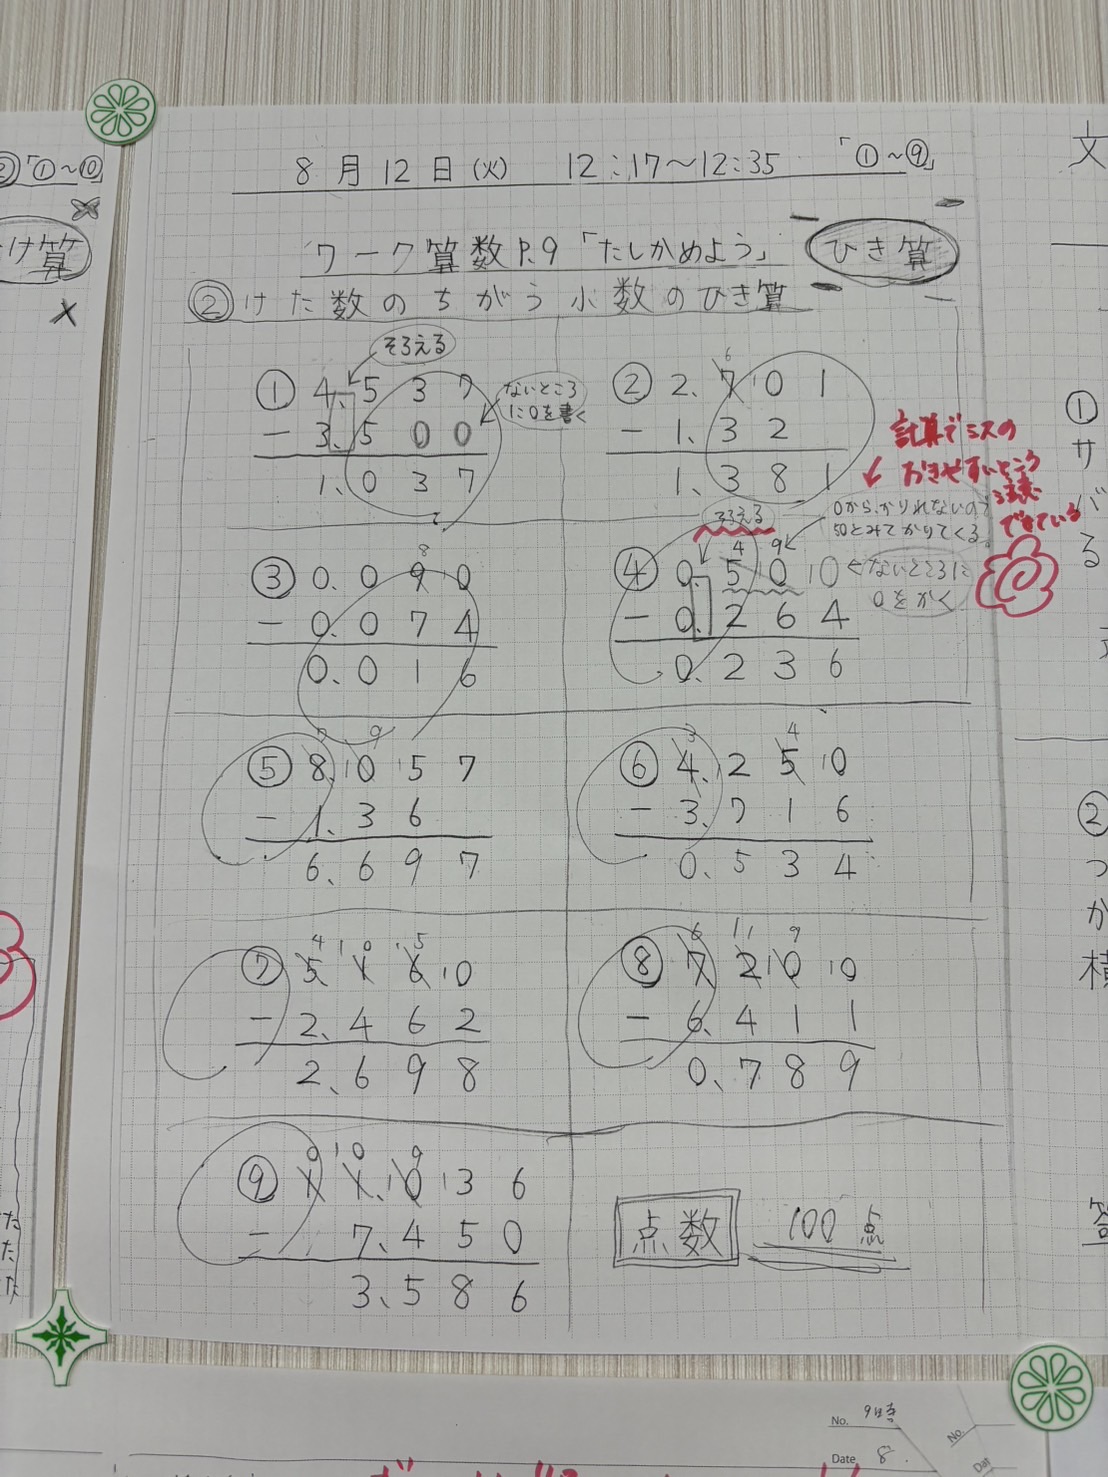 8月12日(火) 12:17～12:35 「①～⑨」
ワーク算数P.9「たしかめよう」 ひき算
②けた数のちがう小数のひき算
そろえる
① 4.537
ないところに0を書く
－3.500
1.037
② 2.701
6
－1.32
1.381
計算でミスの
おきやすいところ
注意
できている
③ 0.090
8
－0.074
0.016
そろえる
0からかりれないので
50とみてかりてくる。
4 9
④ 0.5010
ないところに
0をかく
－0.264
0.236
7 9
⑤ 8.10157
－1.36
6.697
3 4
⑥ 4.12510
－3.716
0.534
4 10 15
⑦ 5.1610
－2.462
2.698
6 11 9
⑧ 7.21010
－6.411
0.789
0 10 9
⑨ 11.10136
－7.450
3.586
点数 100点
②「①～⑩」
け算
文
①
サ
バ
る
②
つ
か
横
答
No. 9
Date 8.
No.